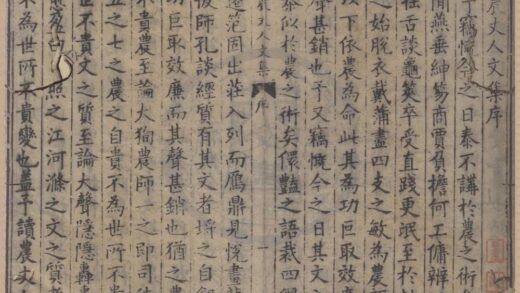 農丈人文集序
竊慨今之日泰不講於農之術
間燕垂紳笏商賈負擔何工傭辦
在舌談龜筴卒受直踐更眠至於
之始脫衣戴蒲盡四支之敏為農
以下依農為命此其為功巨取效
聲甚銷也予又竊慨今之日其文
泰似於農之術矣儇豔之語裁四
丈人文集 序 一
范固出莊入列而鴈鼎見悅畫
彼師孔談經質有其文者捭之自
功巨取效廉而其聲甚銷也猶之
不貴農至論大狥農師一之即司
五之七之農之自貴不為世所不
世不貴文之質至論大聲隱隱轟
照之江河滌之文之質
不為世所不貴變也盖予讀農丈